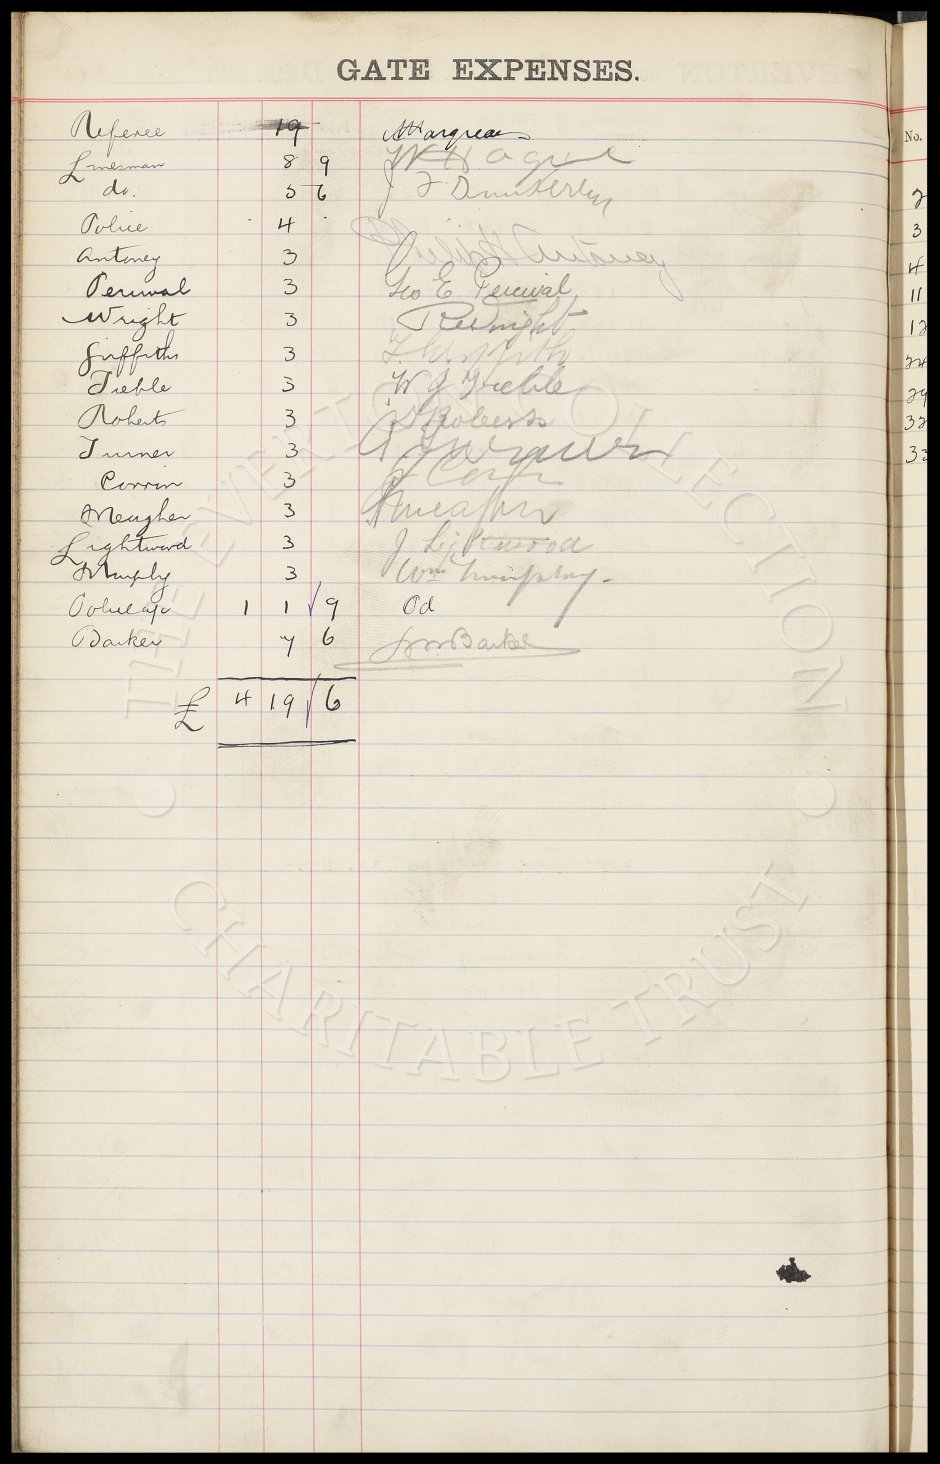 GATE EXPENSES.
Referee 19
Linesman 8 9
do. 5 6
Police 4
Antoney 3 Antoney
Percival 3 Geo E. Percival
Wright 3 R Wright
Griffiths 3
Treble 3 W J Treble
Roberts 3 Roberts
Turner 3
Corrin 3
Meagher 3
Lightwood 3 J Lightwood
Murphy 3 Wm Murphy.
Police a/c 1 1 9 Pd
Barker 7 6 Barker
£ 4 19 6
No.
2
3
4
11
12
24
29
32
33
THE EVERTON COLLECTION
CHARITABLE TRUST